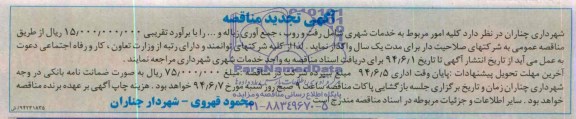 آگهی تجدید مناقصه
شهرداری چناران در نظر دارد کلیه امور مربوط به خدمات شهری شامل رفت و روب ، جمع آوری زباله و ... را با برآورد تقریبی ۱۵/۰۰۰/۰۰۰/۰۰۰ ریال از طریق
مناقصه عمومی به شرکتهای صلاحیت دار برای مدت یک سال واگذار نماید . لذا از کلیه شرکتهای توانمند و دارای رتبه از وزارت تعاون ، کار و رفاه اجتماعی دعوت
به عمل می آید از تاریخ انتشار آگهی تا تاریخ ۹۴/۶/۱ برای دریافت اسناد مناقصه به واحد خدمات شهری شهرداری مراجعه نمایند .
آخرین مهلت تحویل پیشنهادات : پایان وقت اداری ۹۴/۶/۵ مبلغ ۷۵۰/۰۰۰/۰۰۰ ریال به صورت ضمانت نامه بانکی در وجه
شهرداری چناران زمان و تاریخ برگزاری جلسه بازگشایی پاکات مناقصه ساعت ۹ صبح روز شنبه مورخ ۹۴/۶/۷ خواهد بود . هزینه چاپ آگهی بر عهده برنده مناقصه
خواهد بود . سایر اطلاعات و جزئیات مربوطه در اسناد مناقصه مندرج است
محمود قهروی - شهردار چناران
ParsNamadData
پایگاه اطلاع رسانی مناقصه و مزایده
۰۲۱-۸۸۳۴۹۶۷۰-۵